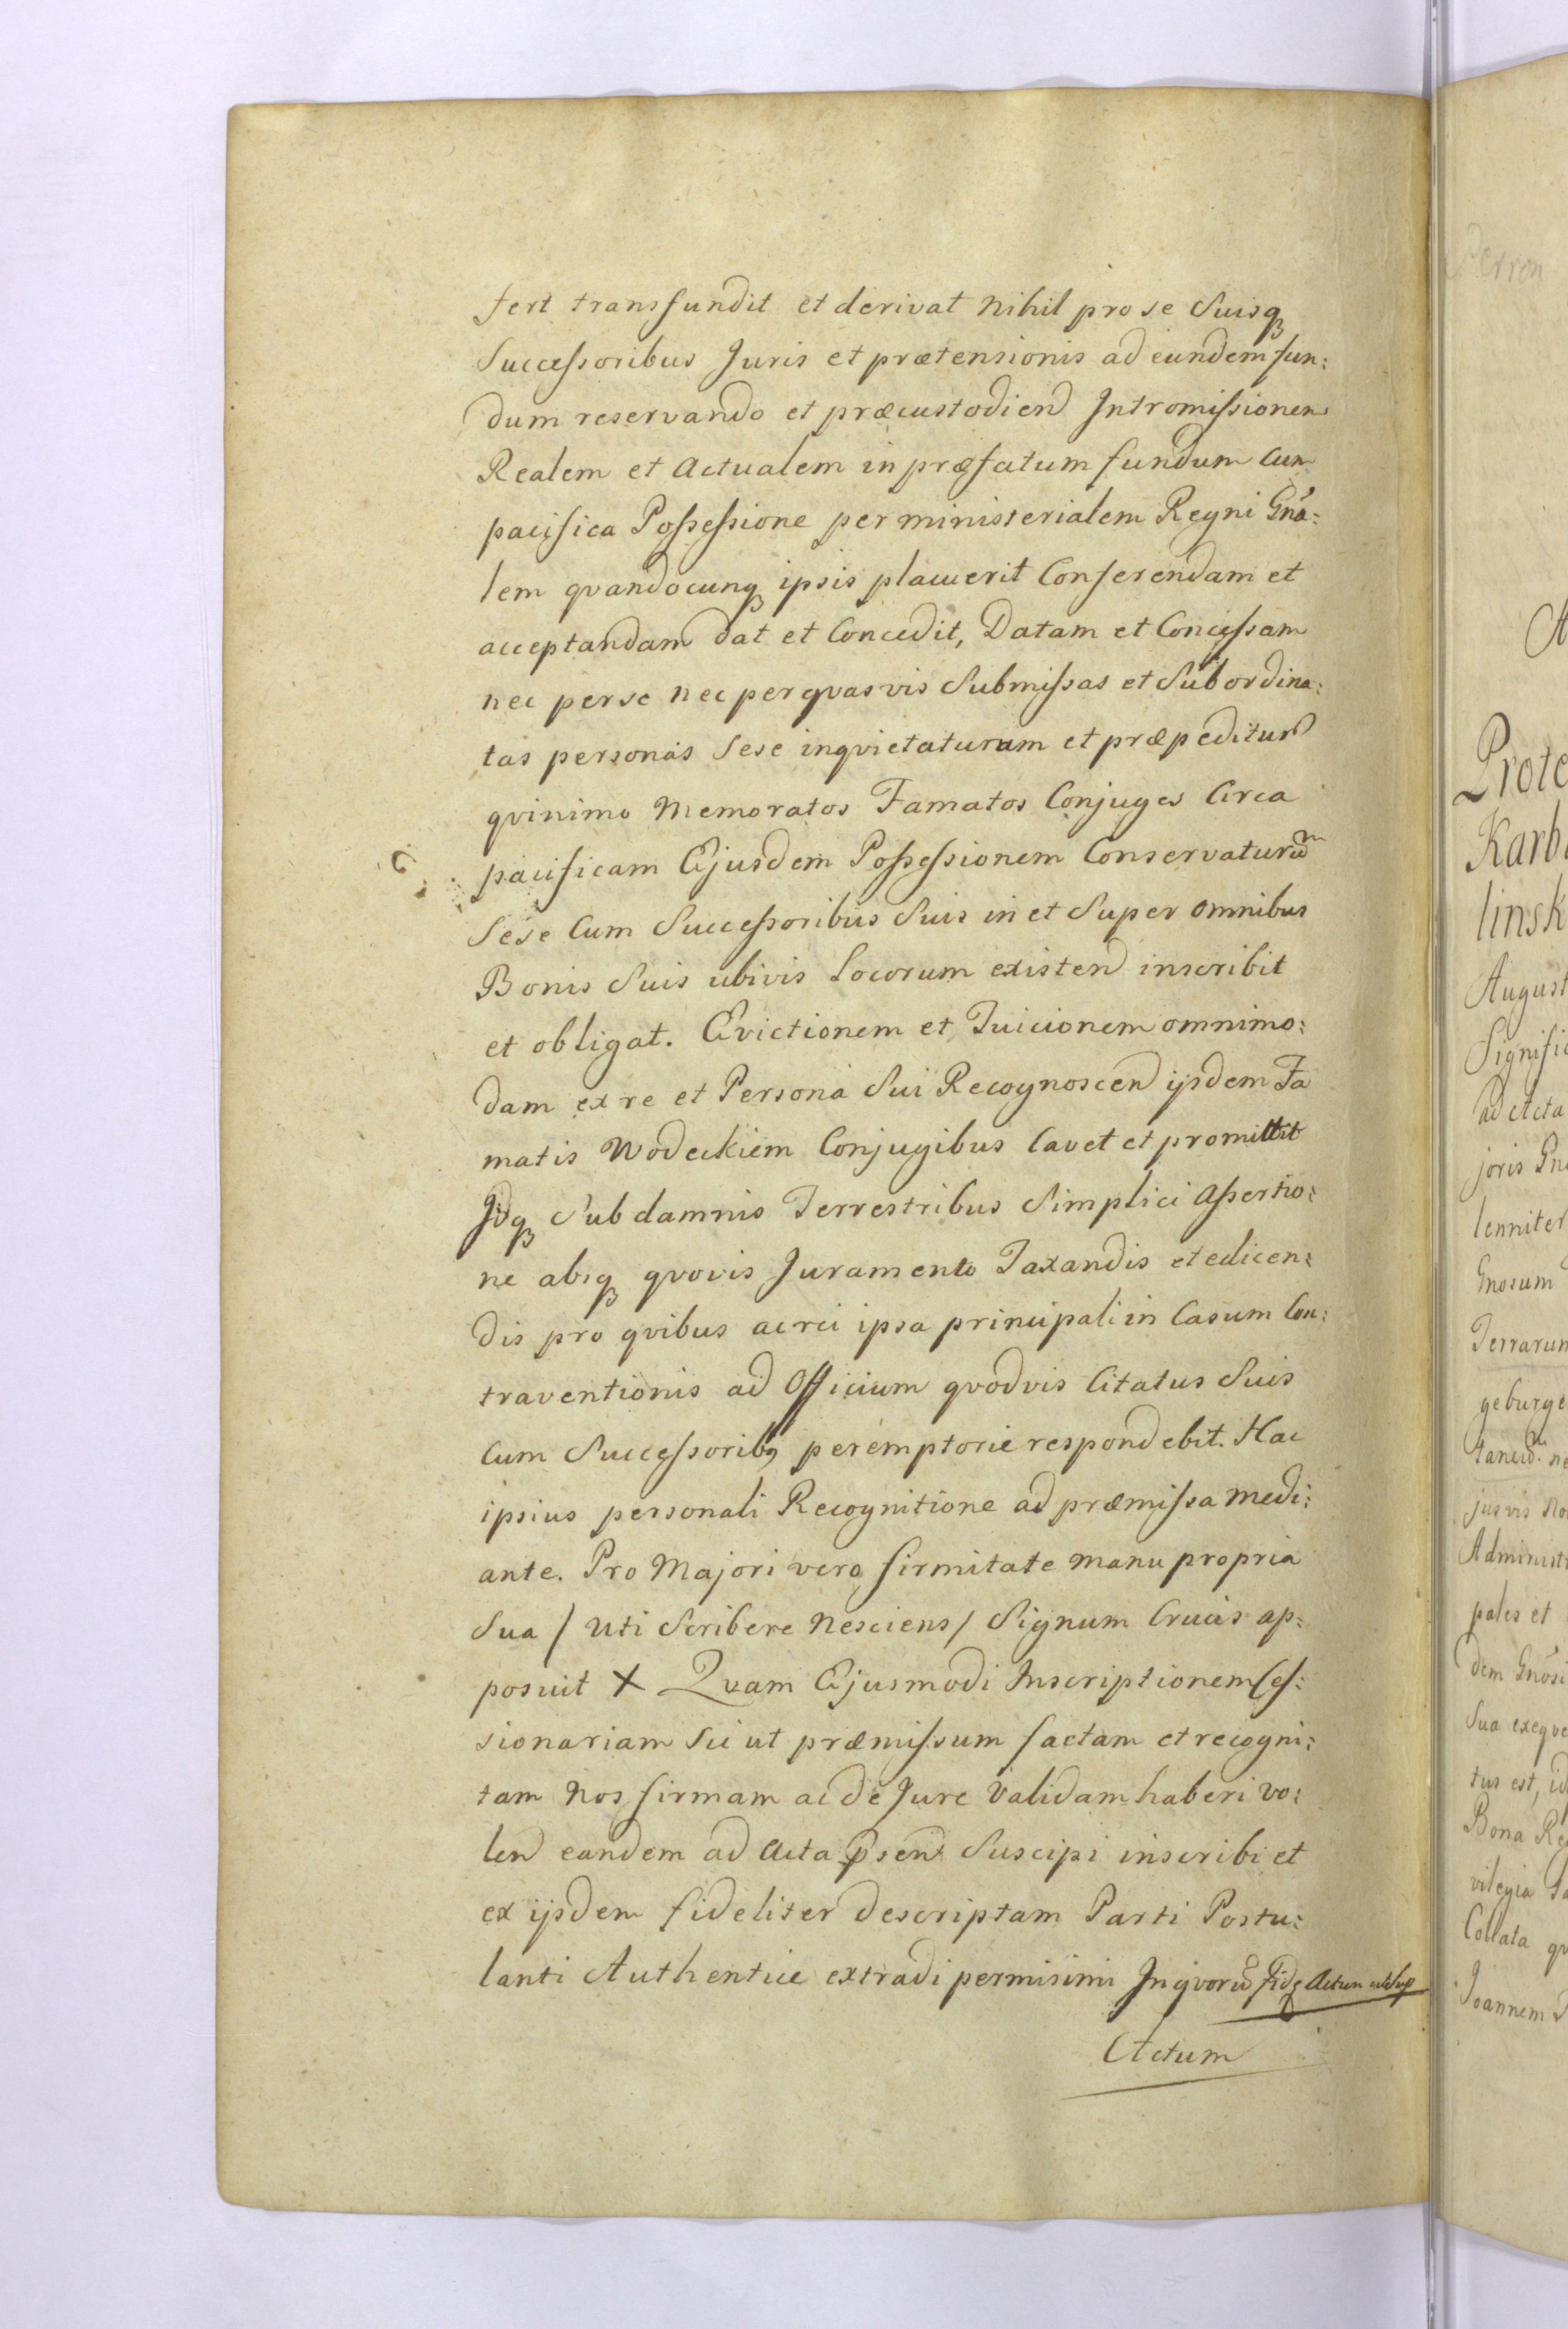 fert transfundit et derivat nihil pro se Suisq
Successoribus Juris et prætensionis ad eundem fun:
dum reservando et præcustodiend Intromissionem
Realem et Actualem in præfatum fundum Cum
pacifica Possessione per ministerialem Regni Gna:
lem qvandocunq ipsis placuerit Conferendam et
acceptandam dat et Concedit, Datam et Concessam
nec per se nec per qvasvis Submissas et Subordina:
tas personas Sese inqvietaturum et præpeditur
qvinimo Memoratos Famatos Conjuges Circa
pacificam Ejusdem Possessionem Conservaturum
Sese Cum Successoribus Suis in et Super omnibus
Bonis Suis ubivis Locorum existend inscribit
et obligat. Evictionem et Tuicionem omnimo:
dam ex re et Persona Sui Recognoscen ijsdem Fa
matis Wodeckiem Conjugibus Cavet et promittit
Idq Sub damnis Terrestribus Simplici Assertio:
ne absq qvovis Juramento Taxandis et edicen:
dis pro qvibus ac rei ipsa principali in Casum Con:
traventionis ad Officium qvodvis Citatus Suis
Cum Successorib9 peremptorie respondebit. Hac
ipsius personali Recognitione ad præmissa medi:
ante. Pro Majori vero firmitate manu propria
Sua / Uti Scribere Nesciens / Signum Crucis ap:
posuit X Qvam Ejusmodi Inscriptionem Ces:
sionariam Sic ut præmissum factam et recogni:
tam Nos firmam ac de Jure Validam haberi vo:
len eandem ad Acta Psent Suscipi inscribi et
ex ijsdem fideliter descriptam Parti Postu:
lanti Authentice extradi permisimi In qvoru fide Actum ut Sup
Actum
Prote
Karb
linsk
August
Signific
ad Acta
joris Gn
lenniter
Gnosum
Terrarum
geburge
jusvis No
Administr
pales et
dem Gnosi
Sua exeqve
tus est, id
Bona Re
vilegia
Collata qv
Joannem